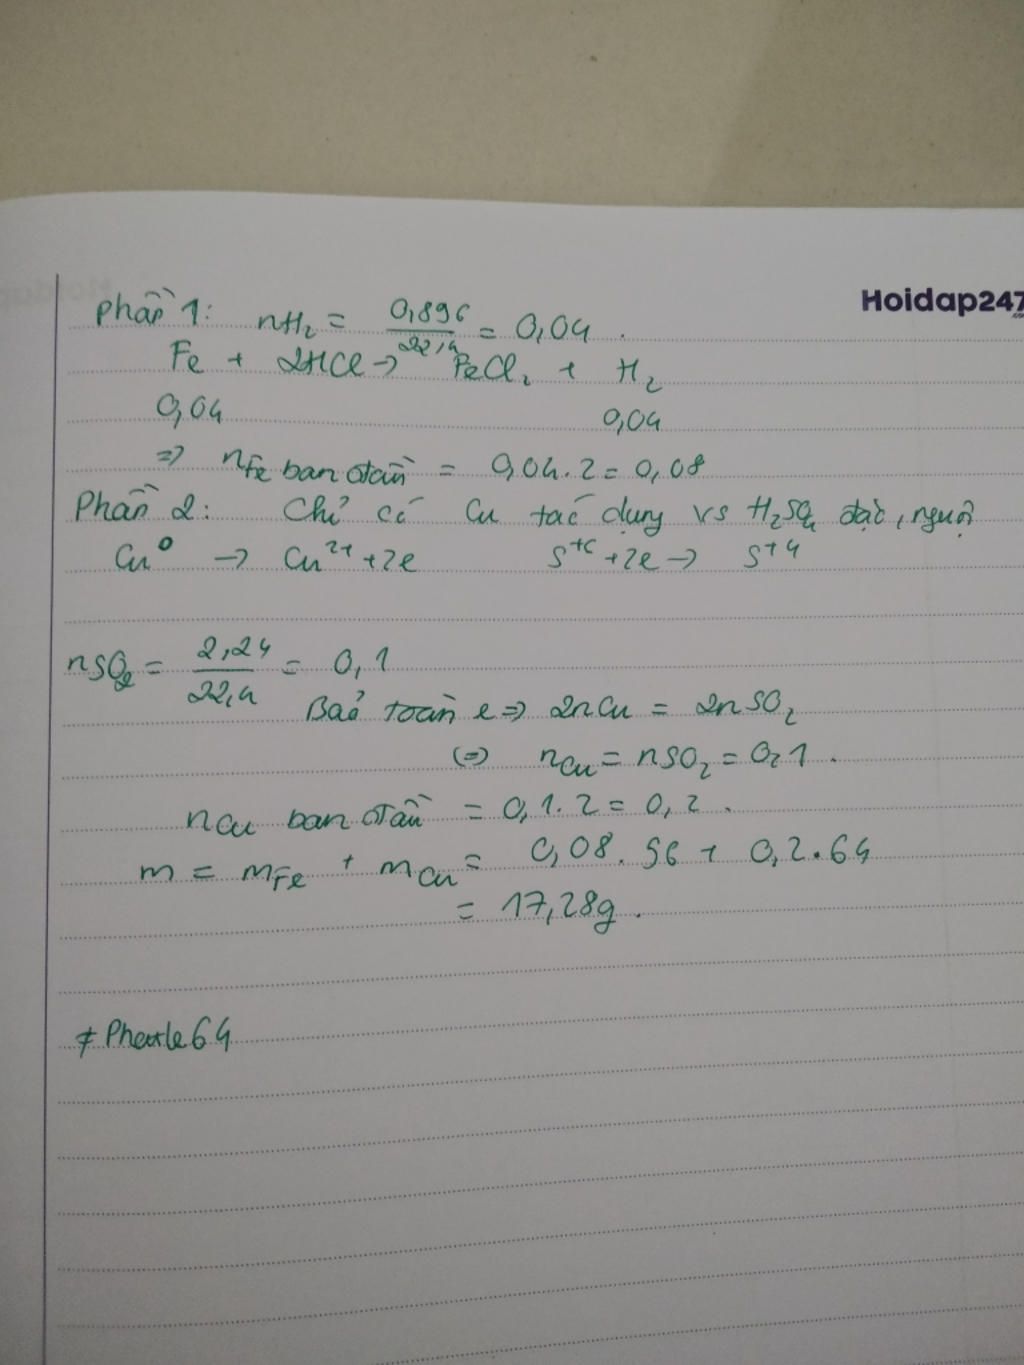 Hoidap247
Phần 1: nH₂ = 0,896/22,4 = 0,04.
Fe + 2HCl → FeCl₂ + H₂
0,04 0,04
=> nFe ban đầu = 0,04.2 = 0,08
Phần 2: Chỉ có Cu tác dụng vs H₂SO₄ đặc, nguội
Cu⁰ → Cu²⁺ + 2e S⁺⁶ + 2e → S⁺⁴
nSO₂ = 2,24/22,4 = 0,1
Bảo toàn e => 2nCu = 2nSO₂
(=) nCu = nSO₂ = 0,1.
nCu ban đầu = 0,1.2 = 0,2.
m = mFe + mCu = 0,08.56 + 0,2.64
= 17,28g.